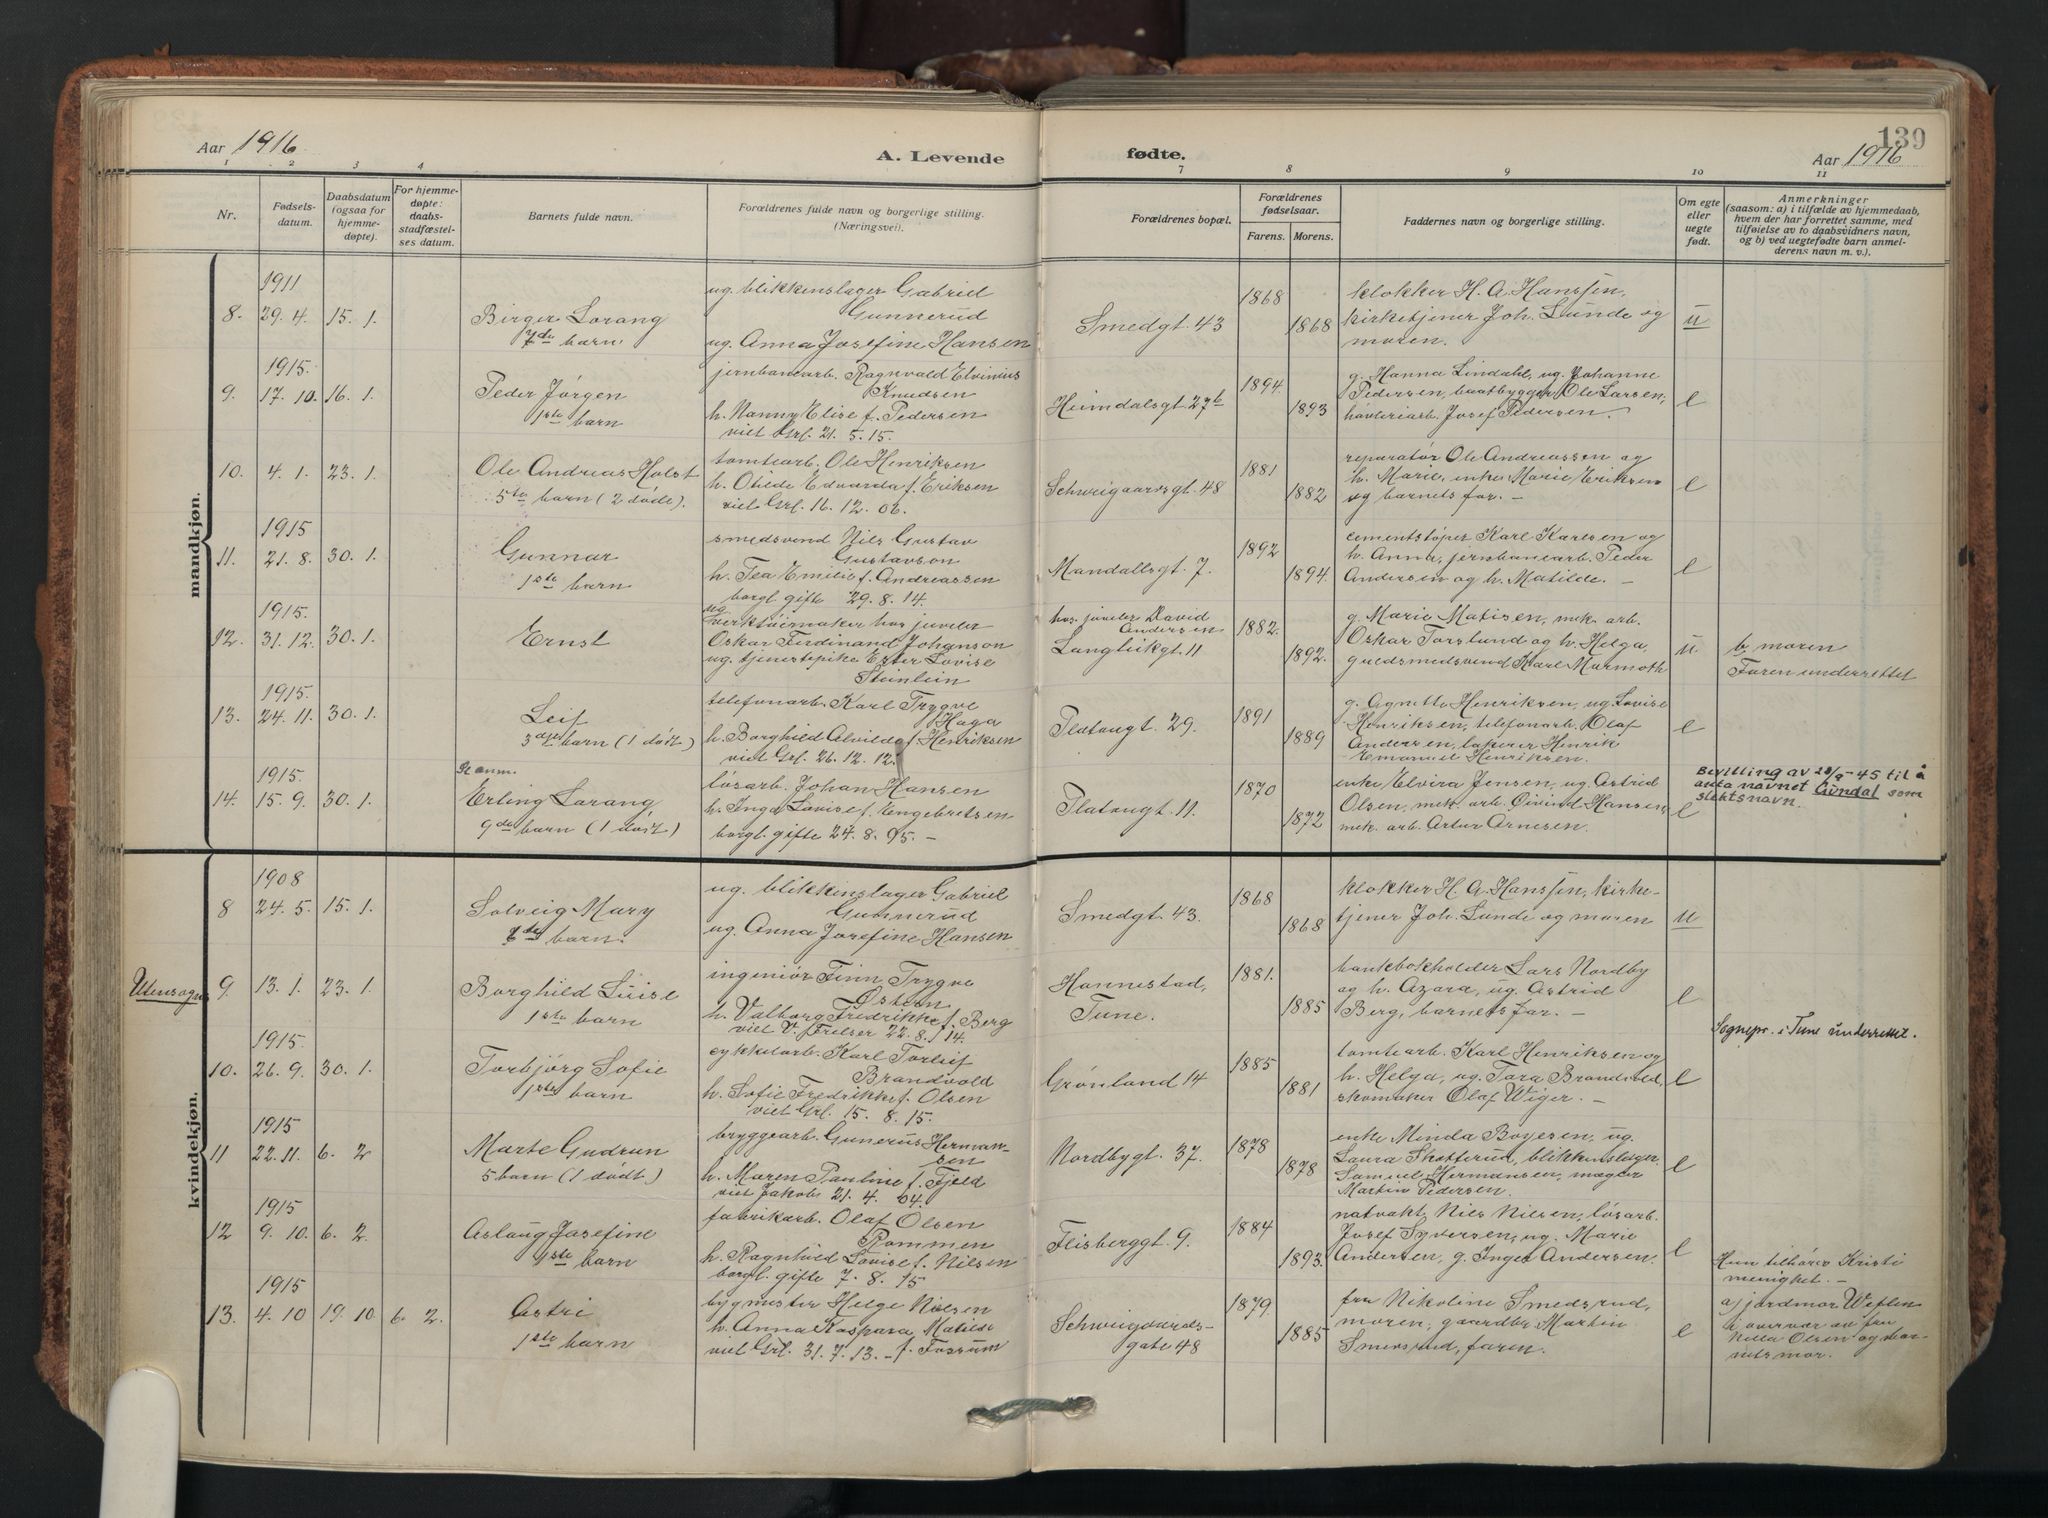 139
Aar 1916
A. Levende
fødte.
Aar 1916
1 2 3 4 7 8 9 10 11
Nr.
Fødsels-
datum.
Daabsdatum
(ogsaa for
hjemme-
døpte).
For hjemme-
døpte:
daabs-
stadfæstel-
ses datum.
Barnets fulde navn.
Forældrenes fulde navn og borgerlige stilling.
(Næringsvei).
Forældrenes bopæl.
Forældrenes
fødselsaar.
Farens. Morens.
Faddernes navn og borgerlige stilling.
Om egte
eller
uegte
født.
Anmerkninger
(saasom: a) i tilfælde av hjemmedaab,
hvem der har forrettet samme, med
tilføielse av to daabsvidners navn,
og b) ved uegtefødte barn anmel-
derens navn m. v.).
mandkjøn.
1911
8. 29. 4. 15. 1.
Birger Lorang
7de barn.
ug. blikkenslager Gabriel
Gunnerud
ug. Anna Josefine Hansen
Smedgt. 43
1868
1868
klokker H. A. Hanssen,
kirketjener Joh. Lunde og
moren.
u
1915.
9. 17. 10. 16. 1.
Peder Jørgen
1ste barn
jernbanearb. Ragnvald Elvinius
Knudsen
h. Nanny Elise f. Pedersen
viet Grl. 21. 5. 15.
Heimdalsgt 27b
1894.
1893
g. Hanna Lindahl, ug. Johanne
Pedersen, baatbygger Ole Larsen,
Josef Pedersen.
e
10. 4. 1. 23. 1.
Ole Andreas Holst
5te barn (2 døde).
tomtearb. Ole Henriksen
h. Otilde Edvarda f. Eriksen
viet Grl. 16. 12. 06.
Schweigaardsgt. 48
1881
1882
reparatør Ole Andreassen og
h. Marie, enke Marie Eriksen
og barnets far. –
e
1915
11. 21. 8. 30. 1.
Gunnar
1ste barn
smedsvend Nils Gustav
Gustavson
h. Tea Emilie f. Andreassen
borgl. gifte 29. 8. 14.
Mandallsgt. 7.
1892
1894.
cementstøper Karl Karlsen og
h. Anna, jernbanearb. Peder
Andersen og h. Matilde. –
e
1915.
12. 31. 12. 30. 1.
Ernst
ug
verktøimaker hos juveler
Oskar Ferdinand Johanson
ug. tjenestepike Ester Lovise
Stenlein
hos juveler David
Andersen
Langleikgt. 11
1882.
1892.
g. Marie Matisen, mek. arb.
Oskar Torslund og h. Helga,
guldsmedsvend Karl Marmoth
u.
b, moren
Faren underrettet
1915.
13. 24. 11. 30. 1.
Leif
3dje barn (1 dødt)
telefonarb. Karl Trygve
Haga
h. Borghild Alvilde f. Henriksen
viet Grl. 26. 12. 12.
Platougt. 29.
1891
1889
g. Agnette Henriksen, ug. Lovise
Henriksen, telefonarb. Olaf
Andersen, lakerer Henrik
Emanuel Henriksen.
e
1915.
14. 15. 9. 30. 1.
Se anm.
Erling Lorang
9de barn (1 dødt)
løsarb. Johan Hansen
h. Inga Lovise f. Engebretsen
borgl. gifte 24. 8. 95. –
Platougt. 11.
1870
1872
enke Elvira Jensen, ug. Astrid
Olsen, mek. arb. Øivind Hansen,
mek. arb. Artur Arnesen.
e
Bevilling av 28/8 - 45 til å
anta navnet Gundal som
slektsnavn.
kvindekjøn.
1908
8 24. 5. 15. 1.
Solveig Mary
6de barn.
ug. blikkinslager Gabriel
Gunnerud
ug. Anna Josefine Hansen
Smedgt. 43.
1868
1868
klokker H. A. Hanssen, kirke-
tjener Joh. Lunde og moren
u
Utensogns
9. 13. 1. 23. 1.
Borghild Luise
1ste barn
ingeniør Finn Trygve
Østern
h. Valborg Fredrikke f. Berg
viet V. Frelser 22. 8. 14.
Hannestad,
Tune.
1881.
1885
bankbokholder Lars Nordby
og h. Azara, ug. Astrid
Berg, barnets far. –
e
Sognepr. i Tune underrettet.
1915.
10. 26. 9. 30. 1.
Torbjørg Sofie
1ste barn
cykkelarb. Karl Torleif
Brandvold
h. Sofie Fredrikke f. Olsen
viet Grl. 15. 8. 15.
Grønland 14
1885
1881
tomtearb. Karl Henriksen og
h. Helga, ug. Tora Brandvold,
skomaker Olaf Wiger. –
e
1915
11 22. 11. 6. 2
Marte Gudrun
5 barn (1 dødt.)
bryggearb. Gunerius Herman-
sen
h. Maren Pauline f. Fjeld
viet Jakobs 21. 4. 04.
Nordbygt. 37.
1878
1878
enke Minda Boyesen, ug.
Laura Skotterud, blikkenslager
Samuel Hermansen, mægler
Martin Pedersen.
e
1915
12 9. 10. 6. 2.
Aslaug Josefine
1ste barn
fabrikarb. Olaf Olsen
Rommen
h. Ragnhild Lovise f. Nilsen
borgl. gifte 7. 8. 15
Flisberggt. 9.
1884
1893.
natvakt Nils Nilsen, løsarb.
Josef Syversen, ug. Marie
Andersen, g. Inger Andersen.
e
Hun tilhører Kristi
menighet. –
1915
13. 4. 10 19. 10. 6. 2.
Astri
1ste barn
bygmester Helge Nielsen
h. Anna Kaspara Matilde
viet Grl. 31. 7. 13. – f. Fossum
Schweigaards-
gate 48
1879.
1885
fru Nikoline Smedsrud,
moren, gaardbr. Martin
Smedsrud, faren.
e
a) jordmor Weflen
i overvær av fru
Olsen og bar-
nets mor.